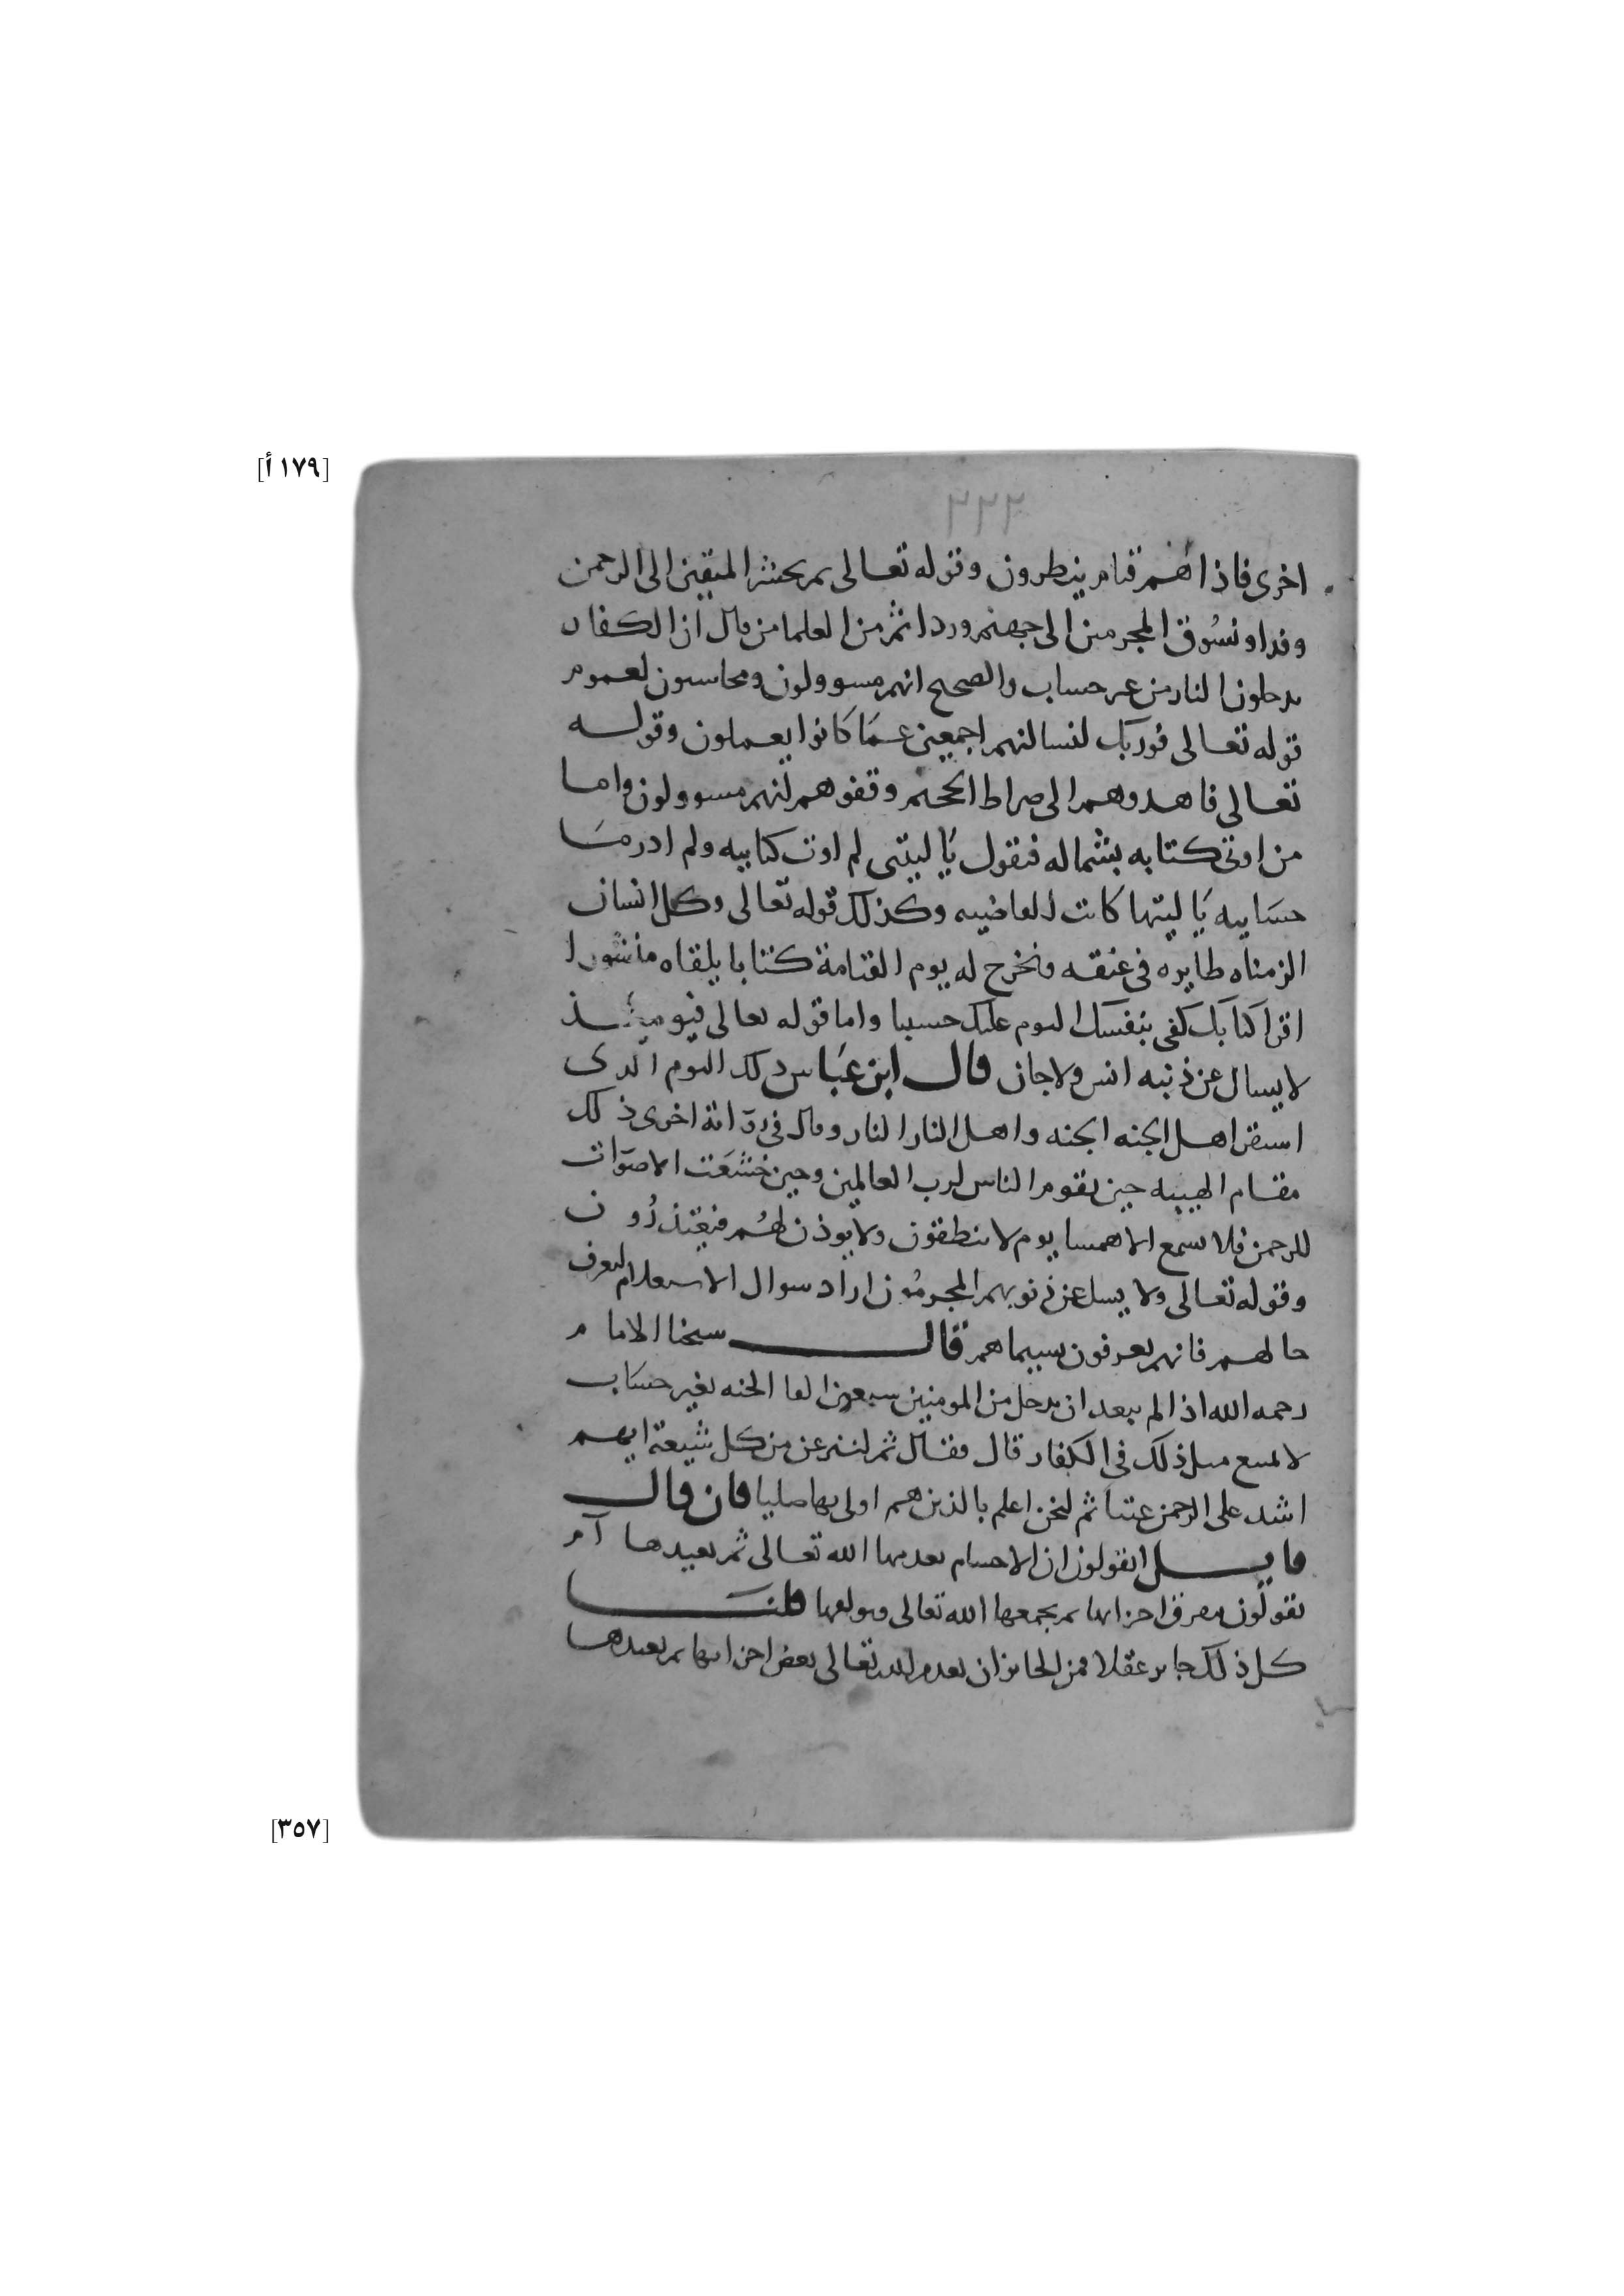 [١٧٩ أ]
٣٢٢
اخرى فاذا هم قيام ينظرون وقوله تعالى يم يحشر المتقين الى الرحمن
وفدا ونسوق المجرمين الى جهنم وردا ثم من العلما من قال ان الكفار
يدخلون النار من غير حساب والصحيح انهم مسوولون ومحاسبون لعموم
قوله تعالى فوربك لنسالنهم اجمعين عما كانوا يعملون وقوله
تعالى فاهدوهم الى صراط الجحيم وقفوهم انهم مسوولون واما
من اوتى كتابه بشماله فيقول يا ليتنى لم اوت كتابيه ولم ادر ما
حسابيه يا ليتها كانت القاضيه وكذلك قوله تعالى وكل انسان
الزمناه طايره فى عنقه ونخرج له يوم القيامة كتابا يلقاه منشورا
اقرا كتابك كفى بنفسك اليوم عليك حسيبا واما قوله تعالى فيوميذ
لا يسال عن ذنبه انس ولا جان قال ابن عباس ذلك اليوم الذى
استقر اهل الجنه الجنه واهل النار النار وقال فى رواية اخرى ذلك
مقام الهيبه حين يقوم الناس لرب العالمين وحين خشعت الاصوات
للرحمن فلا تسمع الا همسا يوم لا ينطقون ولا يوذن لهم فيعتذرون
وقوله تعالى ولا يسل عن ذنوبهم المجرمون اراد سوال الاستعلام ليعرف
حالهم فانهم يعرفون بسيماهم قال شيخنا الامام
رحمه الله اذا لم يبعد ان يدخل من المومنين سبعين الفا الجنه بغير حساب
لا يمتنع مثل ذلك فى الكفار قال فقال ثم لننزعن من كل شيعة ايهم
اشد على الرحمن عتيا ثم لنحن اعلم بالذين هم اولى بها صليا فان قال
قايل اتقولون ان الاجسام يعدمها الله تعالى ثم يعيدها ام
تقولون يفرق اجزاها ثم يجمعها الله تعالى ويولفها قلنا
كل ذلك جايز عقلا فمن الجايز ان يعدم الله تعالى بعض اجزايها ثم يعيدها
[٣٥٧]